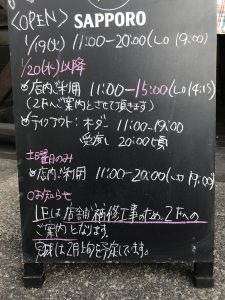 <OPEN> SAPPORO
1/19(火) 11:00-20:00(LO 19:00)
1/20(水)以降
店内ご利用 11:00-15:00(LO 14:15)
(2Fへご案内とさせて頂きます)
テイクアウト:オーダー 11:00-19:00
受渡し 20:00頃
土曜日のみ
店内ご利用 11:00-20:00(LO 19:00)
○お知らせ
1Fは店舗補修工事のため、2Fへの
ご案内となります。
完成は2月上旬を予定しています。